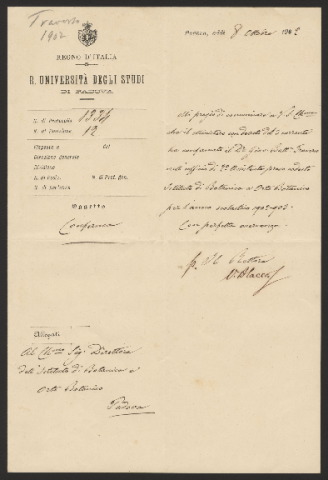 Traverso
1902
REGNO D'ITALIA
R. UNIVERSITÀ DEGLI STUDI
DI PADOVA
N. di Protocollo 1334
N. di Posizione 12
Risposta a
del
Direzione Generale
Divisione
N. di Prot. Gen.
N. di partenza
OGGETTO
Conferma
Allegati
Al Ch.mo Sig. Direttore
dell'Istituto di Botanica e
Orto Botanico
Padova
PADOVA, addì 8 Ottobre 1902
Mi pregio di comunicare a V. S. Ch.ma
che il Ministero con decreto del 3 corrente
ha confermato il Dr. Giov. Batt. Traverso
nell'ufficio di 2º Assistente presso codesto
Istituto di Botanica e Orto Botanico
per l'anno scolastico 1902-903.
Con perfetta osservanza
p. Il Rettore